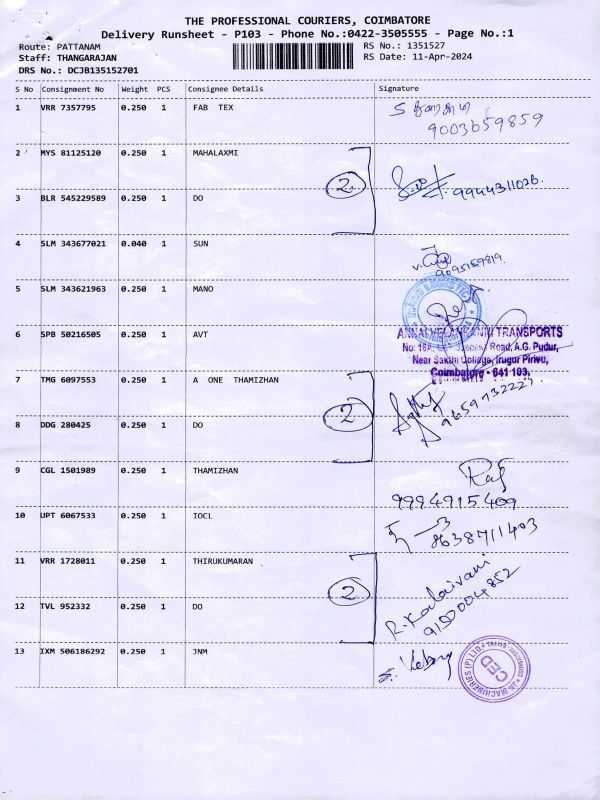 THE PROFESSIONAL COURIERS, COIMBATORE
Delivery Runsheet - P103 - Phone No.:0422-3505555 - Page No.:1
Route: PATTANAM RS No.: 1351527
Staff: THANGARAJAN RS Date: 11-Apr-2024
DRS No.: DCJB135152701
S No Consignment No Weight PCS Consignee Details Signature
1 VRR 7357795 0.250 1 FAB TEX
9003659859
2 MYS 81125120 0.250 1 MAHALAXMI
2 9944311026.
3 BLR 545229589 0.250 1 DO
4 SLM 343677021 0.040 1 SUN
9095159819.
5 SLM 343621963 0.250 1 MANO
6 SPB 50216505 0.250 1 AVT
ANNAI VELANKANNI TRANSPORTS
Road, A.G. Pudur,
Near Sakthi College, Irugur Pirivu,
Coimbatore - 641 103.
7 TMG 6097553 0.250 1 A ONE THAMIZHAN
2
8 DDG 280425 0.250 1 DO
9 CGL 1501989 0.250 1 THAMIZHAN
Raj
9994915409
10 UPT 6067533 0.250 1 IOCL
8638711403
11 VRR 1728011 0.250 1 THIRUKUMARAN
2 R. Kalaivani
9150004852
12 TVL 952332 0.250 1 DO
13 IXM 506186292 0.250 1 JNM
CED